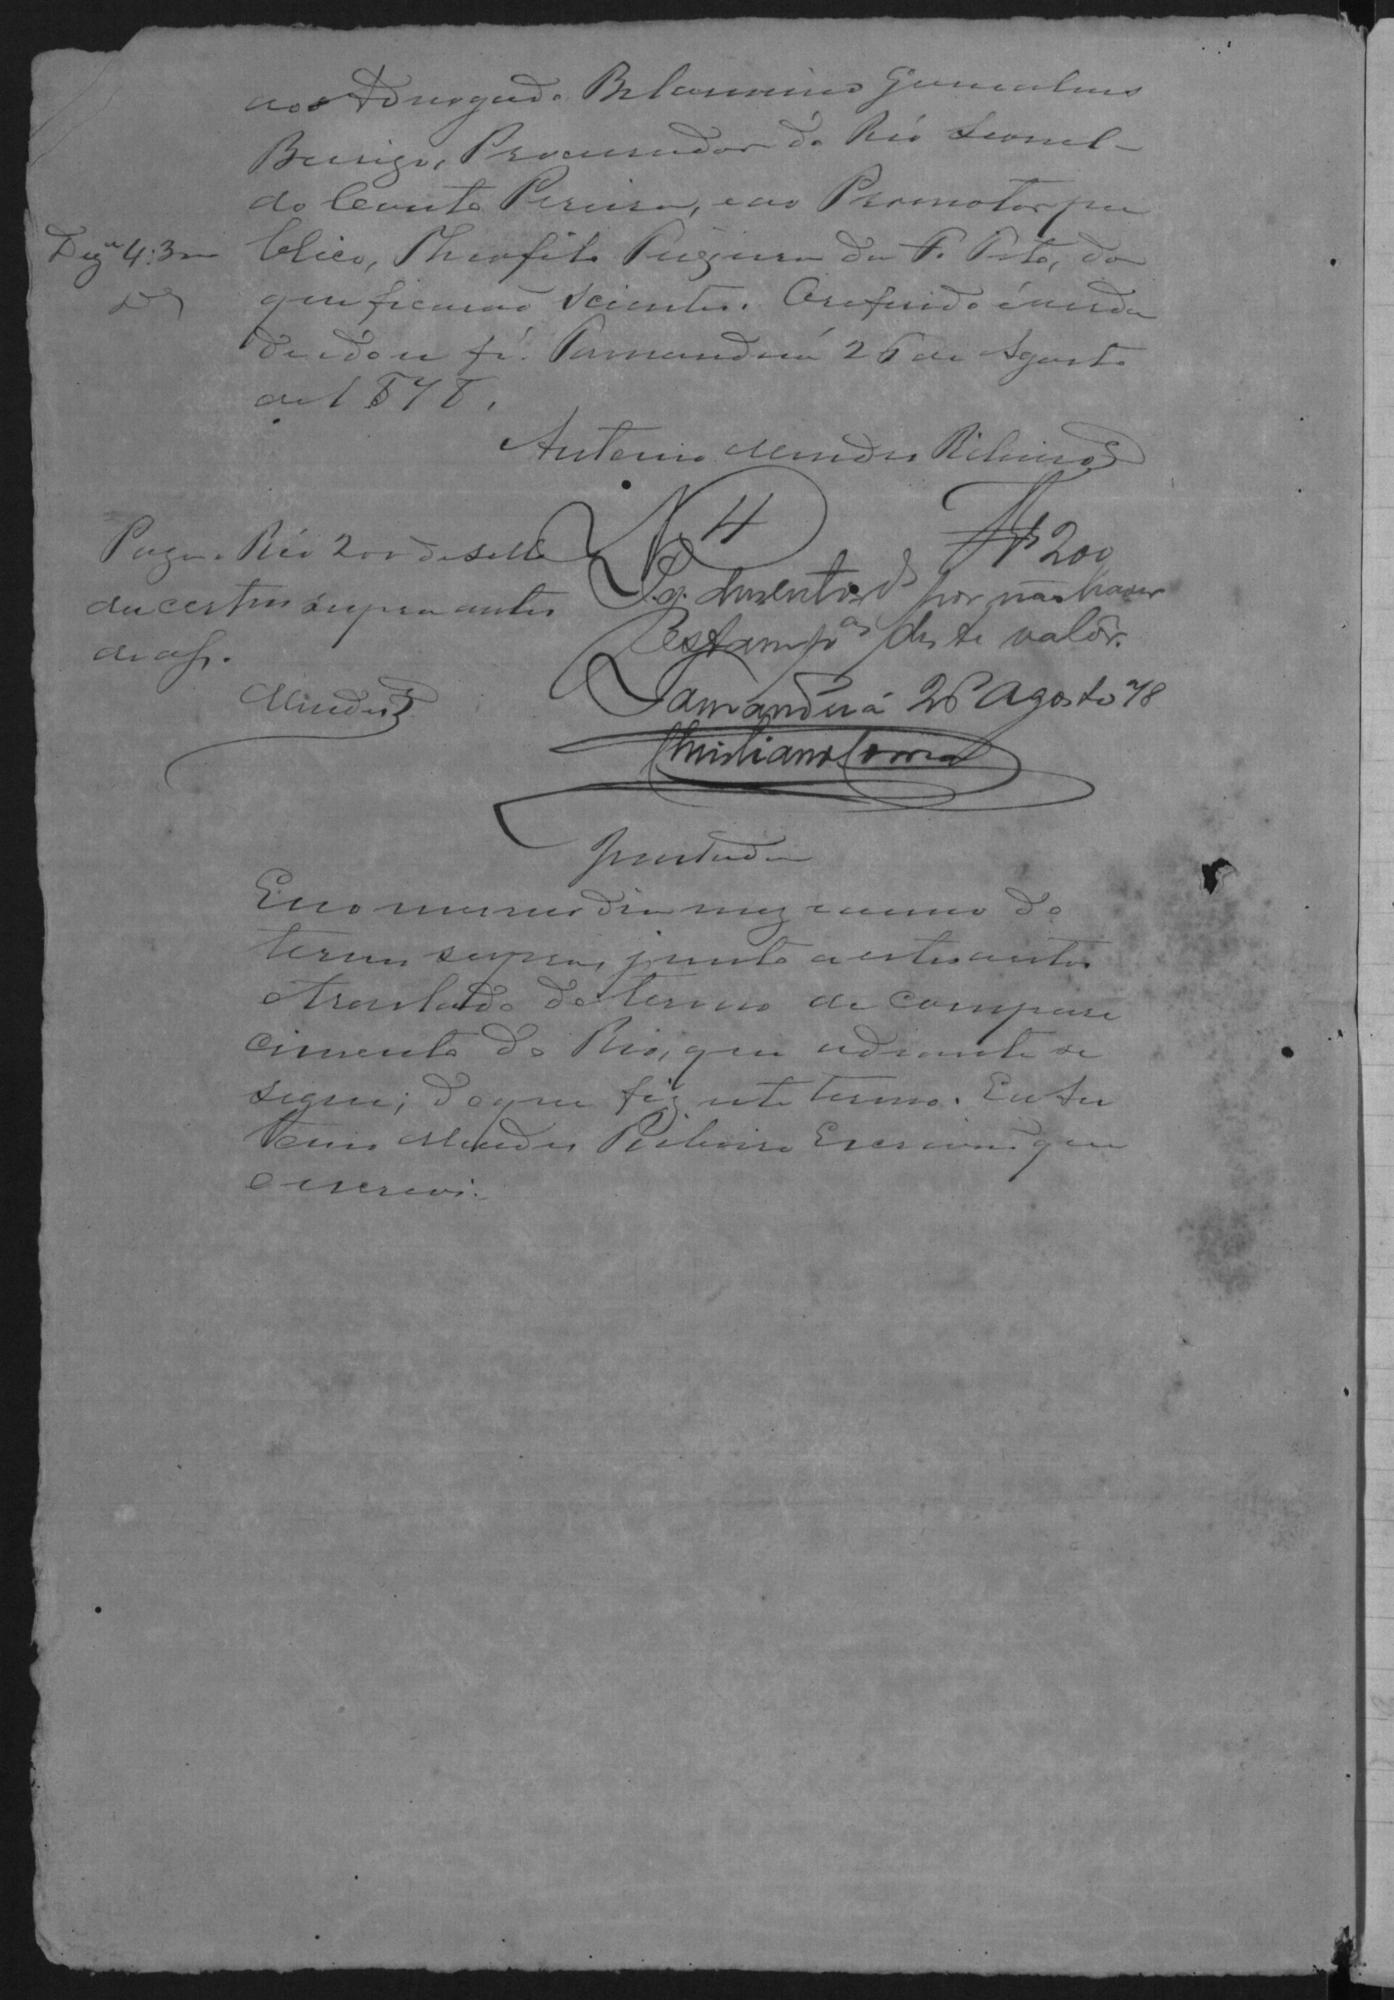 ao Advogado Belarmino Gonçalves
Procurador do Réo Leonel-
do Couto Pereira, e ao Promotor pu
blico, Theofilo Pereira da F. Pito, do
que ficarão scientes. O referido é verda
de e dou fé. Tamanduá 26 de Agosto
de 1878.
Antonio Mendes Ribeiro
Pagou o Réo 200 de sello
da certam supra antes
de
Mendes
N. 4 Rs 200
Pg. duzentos rs por não haver
estampas deste valôr.
Tamanduá 26 Agosto 78
Christiano Corrêa
Juntada
E no mesmo dia mez e anno do
termo supra, junto a estes autos
o traslado do termo de compare
cimento do Réo, que adiante se
segue; do que fiz este termo. Eu An
tonio Mendes Ribeiro Escrivão que
o escrevi.